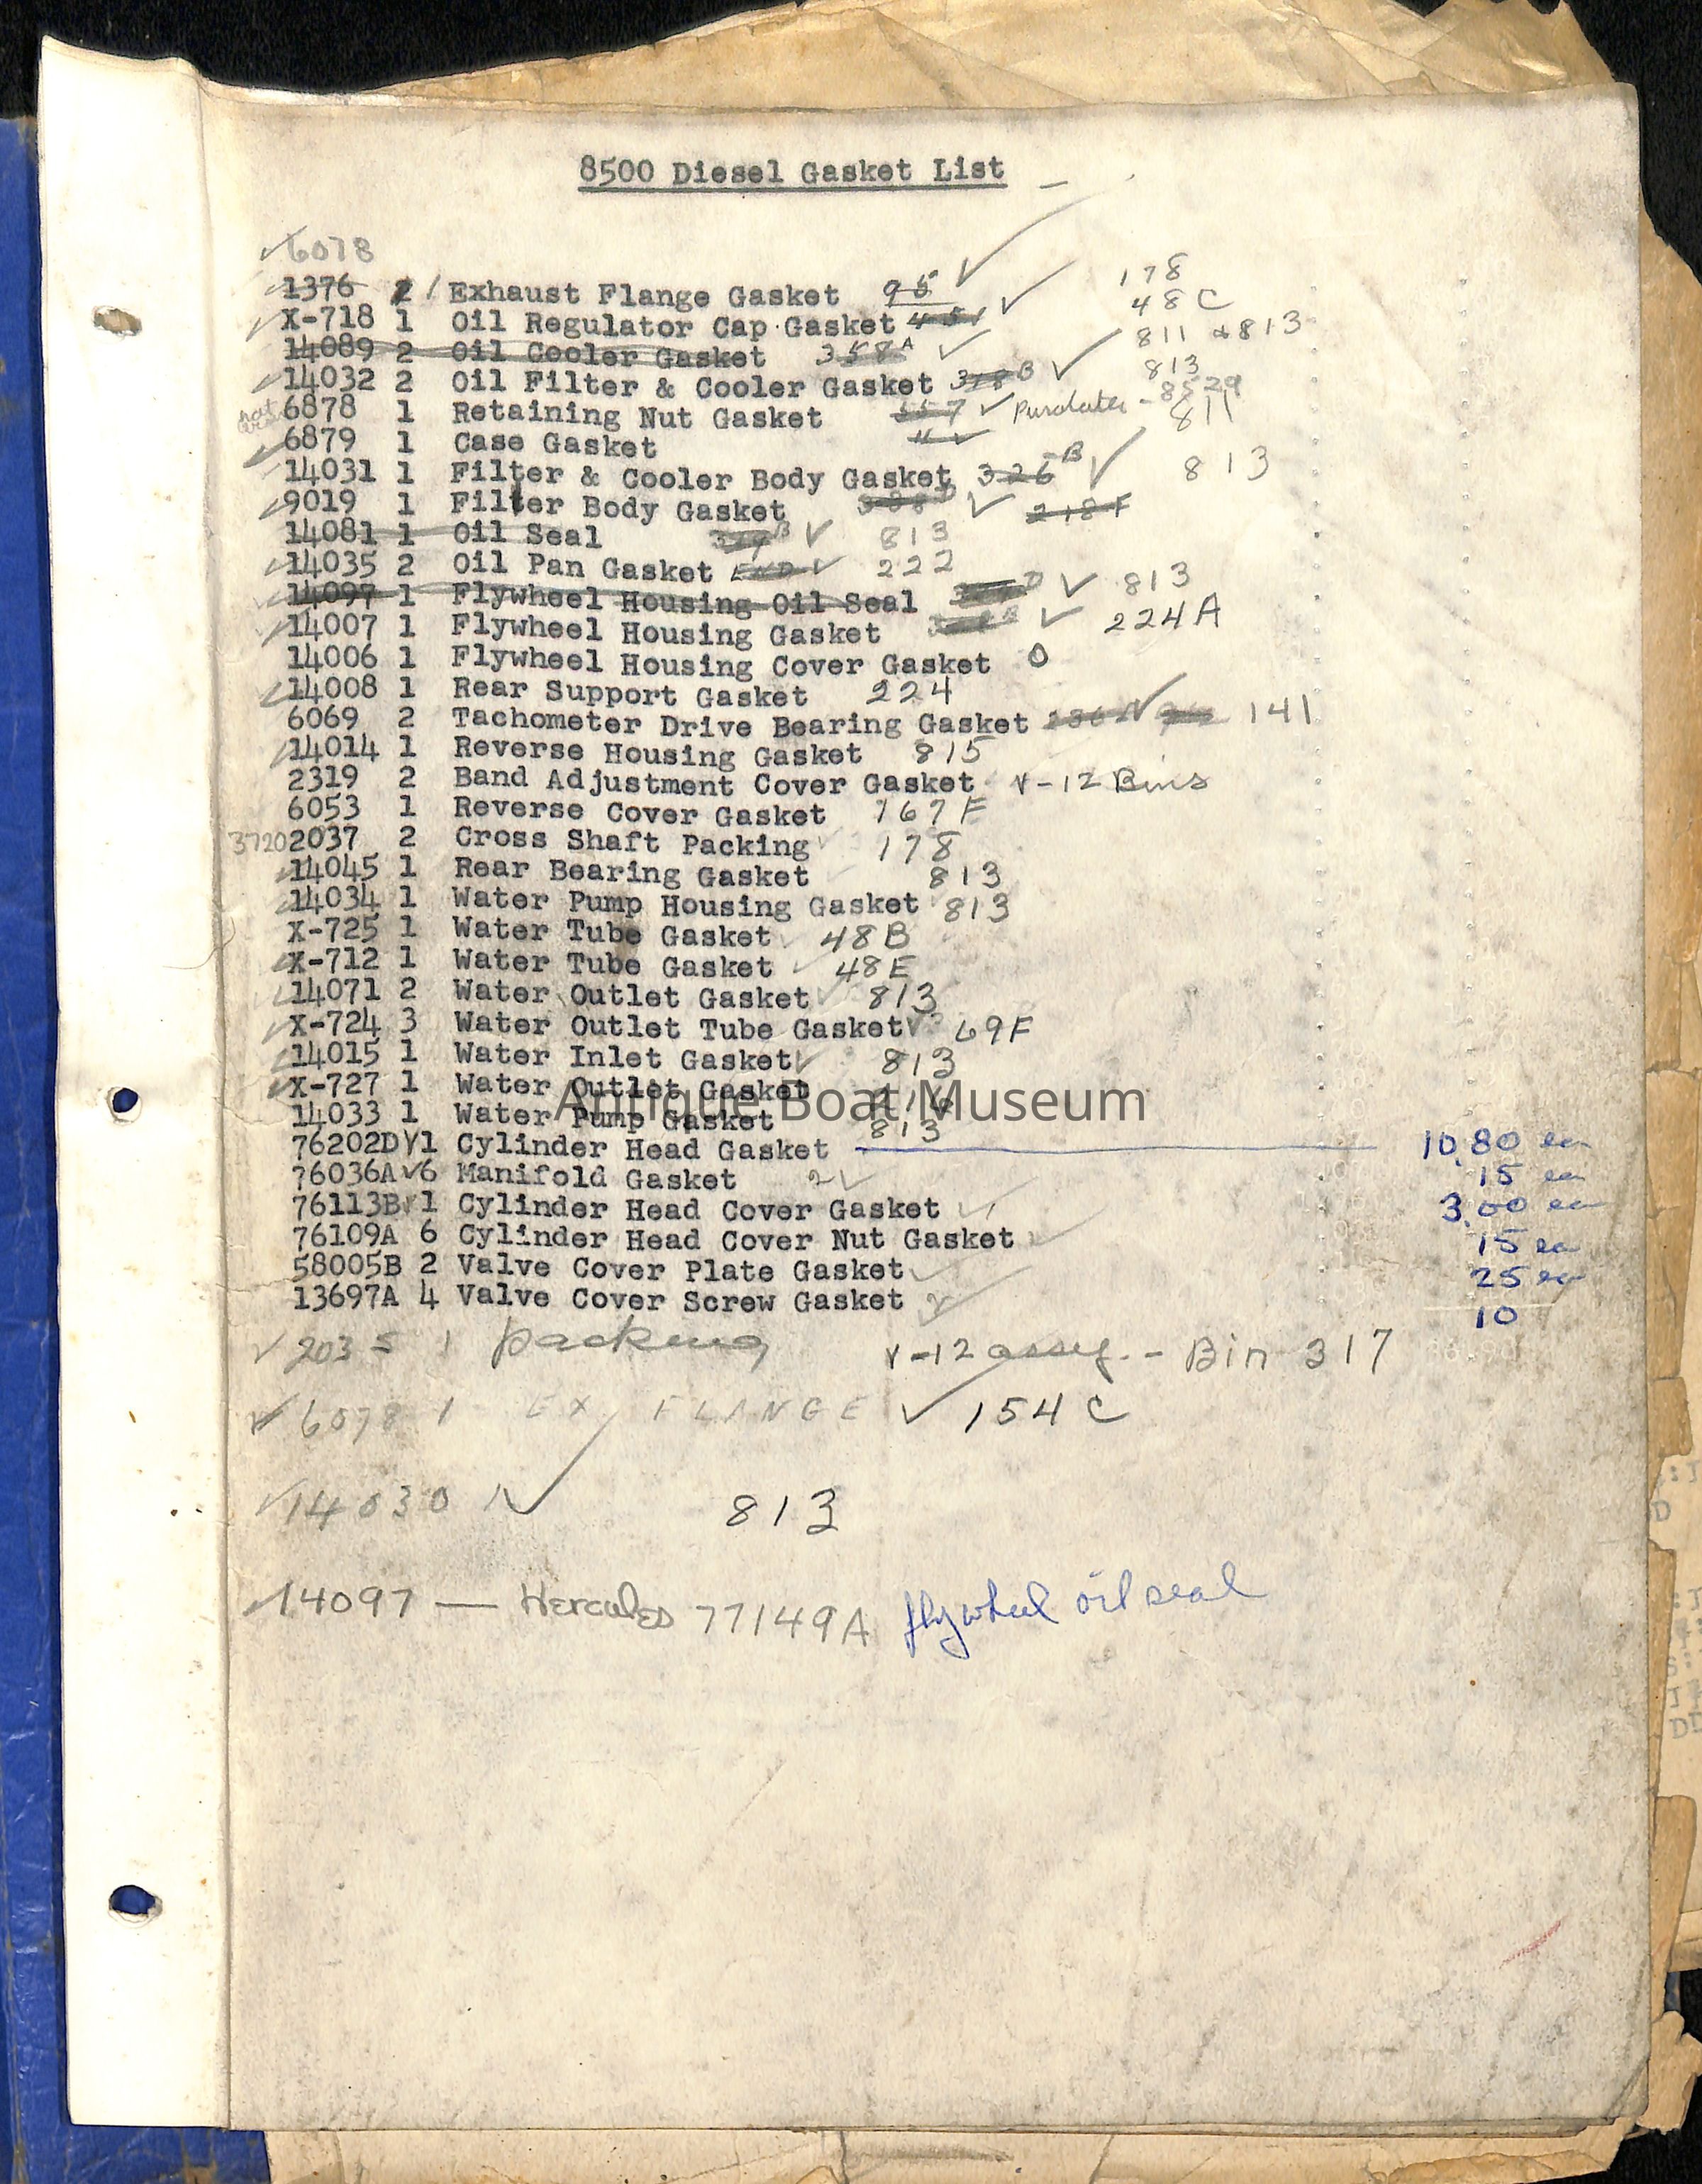 8500 Diesel Gasket List
6078
1376 2 1 Exhaust Flange Gasket 95 178
X-718 1 Oil Regulator Cap Gasket 451 48C
14089 2 Oil Cooler Gasket 358A 811 & 813
14032 2 Oil Filter & Cooler Gasket B 813
6878 1 Retaining Nut Gasket 557 Purolater - 8529
6879 1 Case Gasket " 811
14031 1 Filter & Cooler Body Gasket 326B 813
9019 1 Filter Body Gasket 218F
14081 1 Oil Seal B 813
14035 2 Oil Pan Gasket 222
14097 1 Flywheel Housing Oil Seal D 813
14007 1 Flywheel Housing Gasket 224A
14006 1 Flywheel Housing Cover Gasket 0
14008 1 Rear Support Gasket 224
6069 2 Tachometer Drive Bearing Gasket 141
14014 1 Reverse Housing Gasket 815
2319 2 Band Adjustment Cover Gasket V-12 Bins
6053 1 Reverse Cover Gasket 167F
3720 2037 2 Cross Shaft Packing 178
14045 1 Rear Bearing Gasket 813
14034 1 Water Pump Housing Gasket 813
X-725 1 Water Tube Gasket 48B
X-712 1 Water Tube Gasket 48E
14071 2 Water Outlet Gasket 813
X-724 3 Water Outlet Tube Gasket 69F
14015 1 Water Inlet Gasket 813
X-727 1 Water Outlet Gasket
Antique Boat Museum
14033 1 Water Pump Gasket 813
76202D 1 Cylinder Head Gasket 10.80 ea
76036A 6 Manifold Gasket 2 15 ea
76113B 1 Cylinder Head Cover Gasket 3.00 ea
76109A 6 Cylinder Head Cover Nut Gasket 15 ea
58005B 2 Valve Cover Plate Gasket 25 ea
13697A 4 Valve Cover Screw Gasket 10
2035 1 packing V-12 assy. - Bin 317
6078 1 EX. FLANGE 154C
14030 1 813
14097 — Hercules 77149A flywheel oil seal